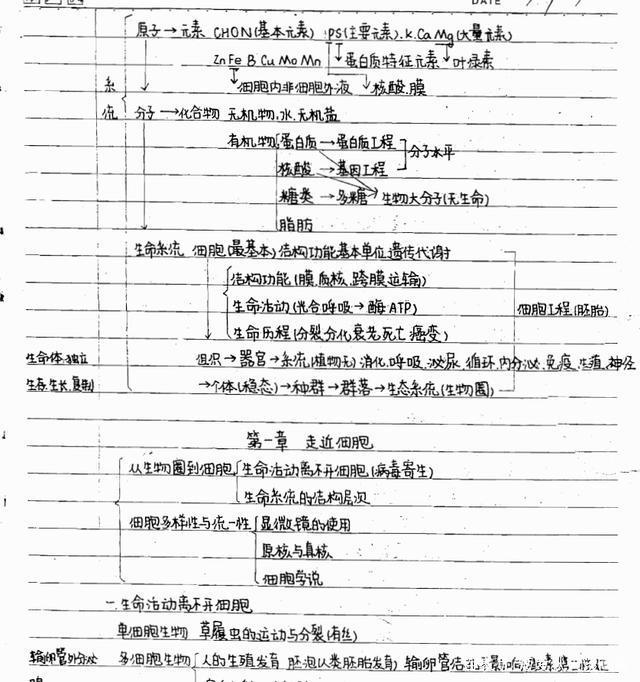 DATE
原子→元素 CHON(基本元素) PS(主要元素).K.Ca Mg(大量元素)
Zn Fe B Cu Mo Mn 蛋白质特征元素 叶绿素
细胞内非细胞外液 核酸.膜
系统
分子→化合物 无机物.水.无机盐
有机物 蛋白质→蛋白质工程 分子水平
核酸→基因工程
糖类→多糖 生物大分子(无生命)
脂肪
生命系统 细胞(最基本)结构功能基本单位.遗传代谢
结构功能(膜.质.核.跨膜运输)
生命活动(光合呼吸→酶.ATP) 细胞工程(胚胎)
生命历程(分裂分化衰老死亡.癌变)
生命体:独立 组织→器官→系统(植物无)消化.呼吸.泌尿.循环.内分泌.免疫.生殖.神经
生存.生长.复制 →个体(稳态)→种群→群落→生态系统(生物圈)
第一章 走近细胞
从生物圈到细胞 生命活动离不开细胞(病毒寄生)
生命系统的结构层次
细胞多样性与统一性 显微镜的使用
原核与真核
细胞学说
一.生命活动离不开细胞
单细胞生物 草履虫的运动与分裂(有丝)
多细胞生物 人的生殖发育 胚泡(人类胚胎发育) 输卵管结扎影响